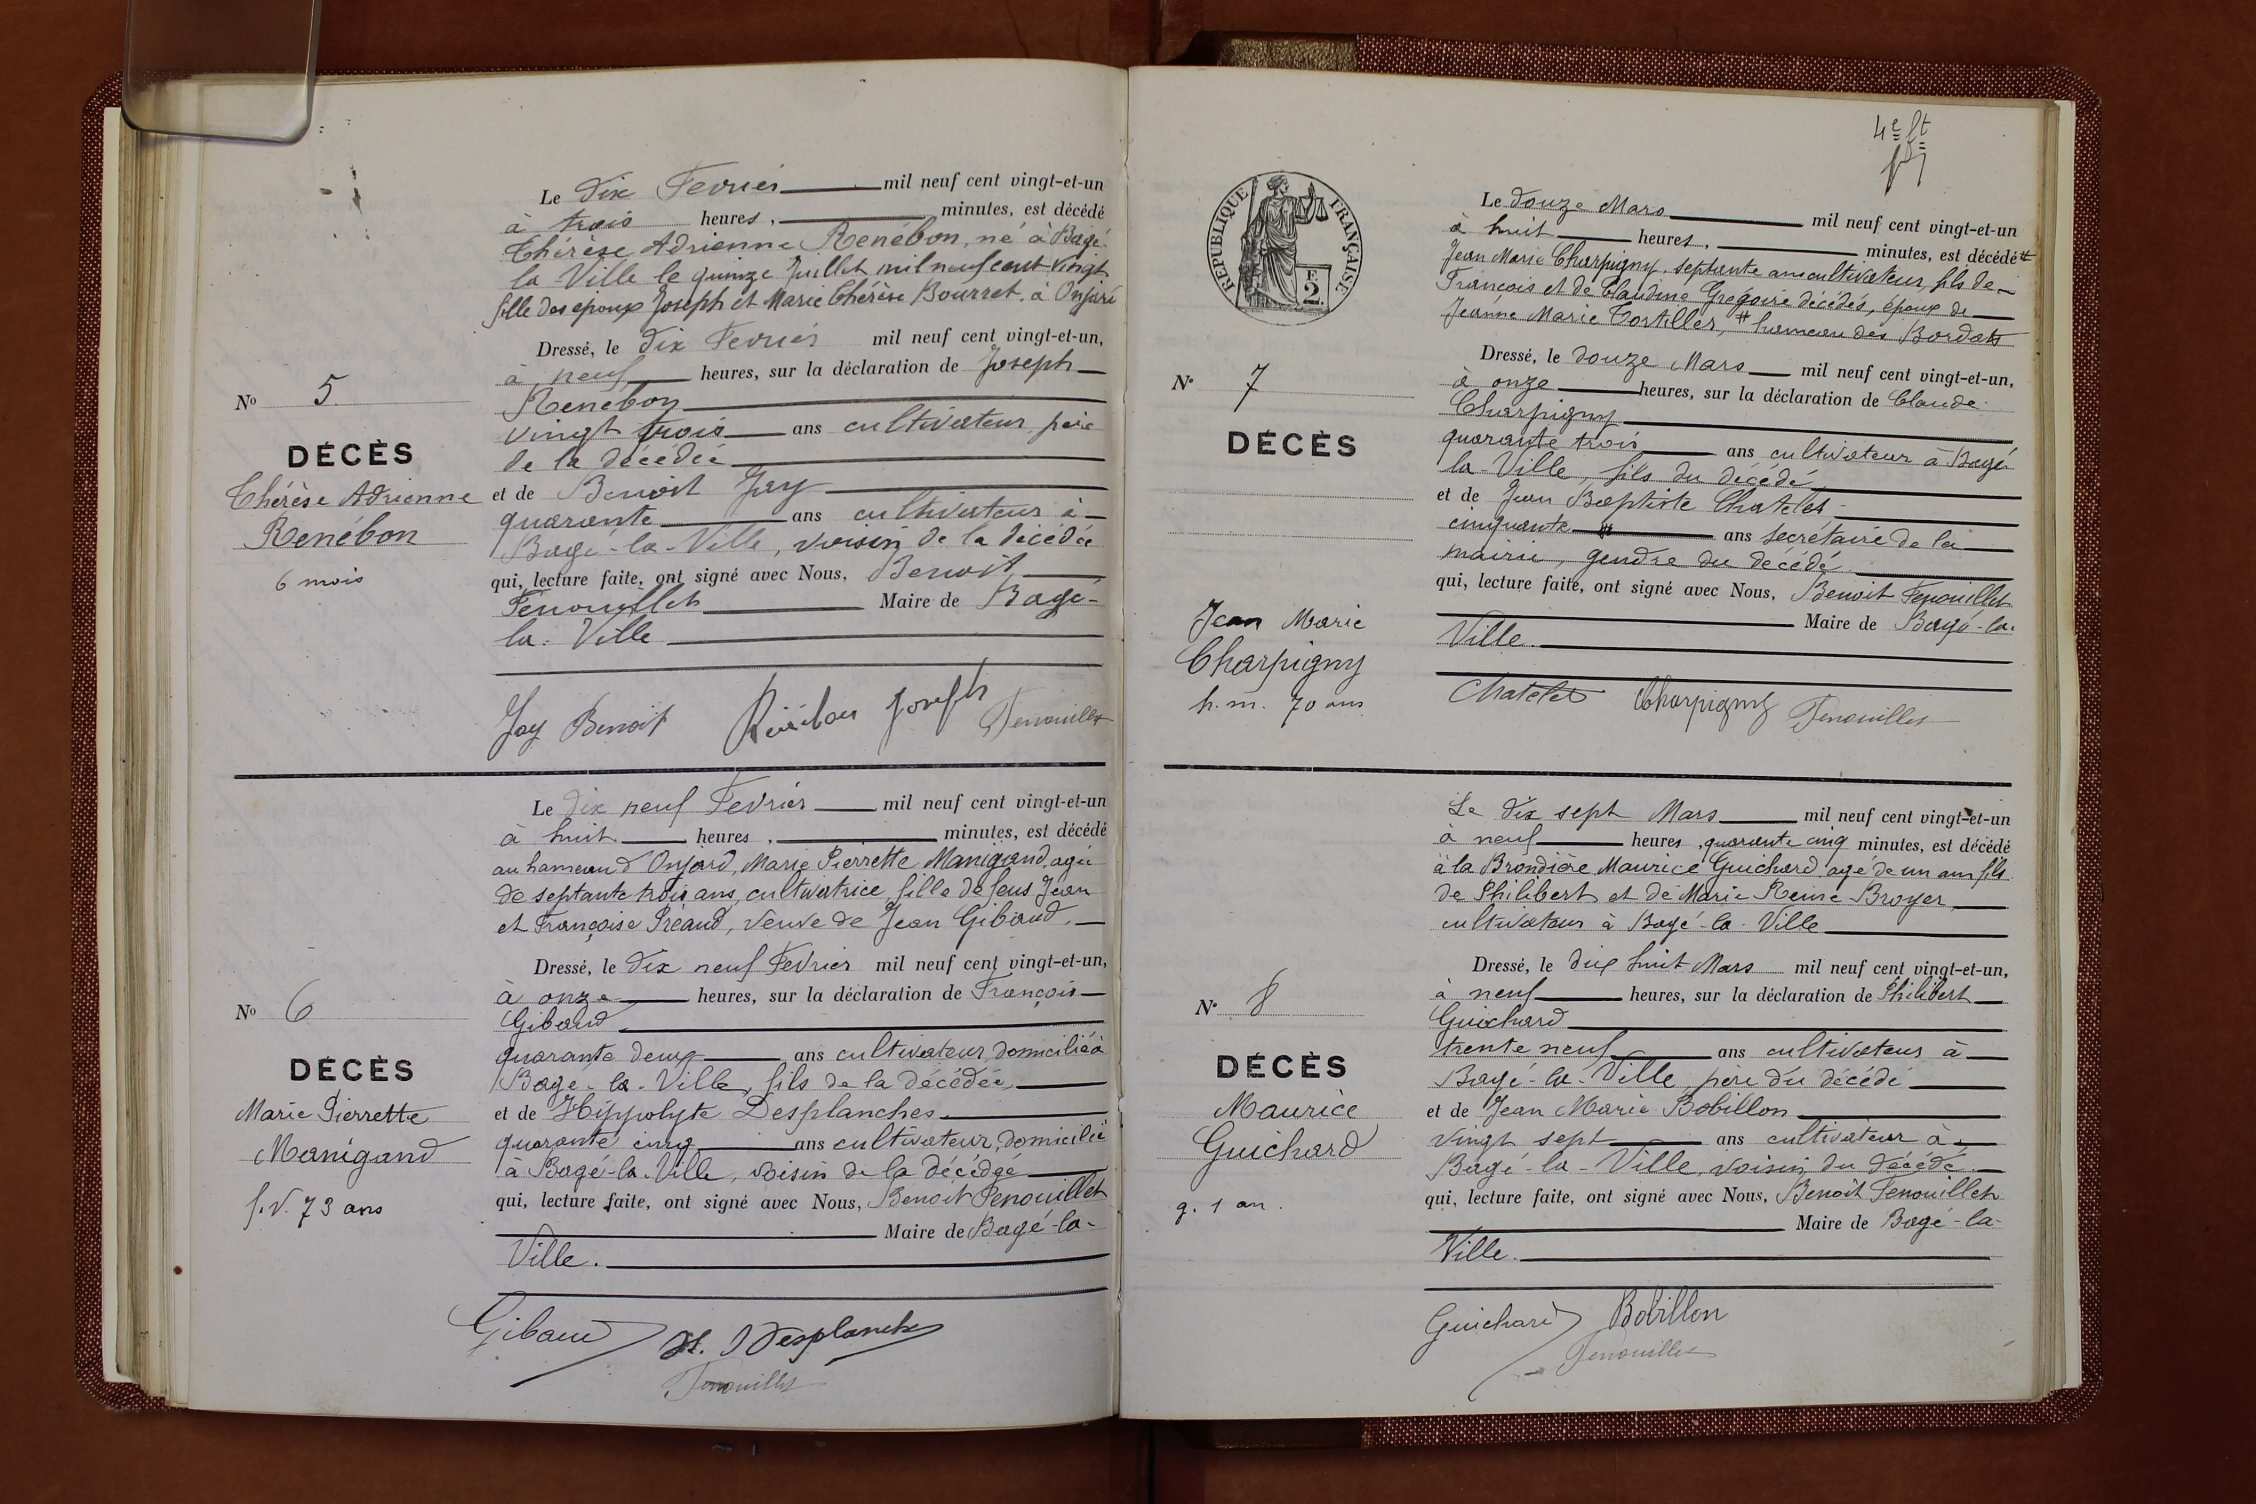 Le dix Fevrier mil neuf cent vingt-et-un
à trois heures, minutes, est décédé
Thérèse Adrienne Renébon, né à Bagé
la Ville le quinze Juillet mil neuf cent vingt
fille des epoux Joseph et Marie Thérèse Bourret, à Onjard
Dressé, le dix Fevrier mil neuf cent vingt-et-un,
à neuf heures, sur la déclaration de Joseph
Renébon
vingt trois ans cultivateur, père
de la décédée
et de Benoit Jay
quarante ans cultivateur à
Bagé-la-Ville, voisin de la décédée
qui, lecture faite, ont signé avec Nous, Benoit
Fenouillet Maire de Bagé-
la-Ville
No 5
DÉCÈS
Thérèse Adrienne
Renébon
6 mois
Jay Benoit Renébon Joseph Fenouillet
Le dix neuf Fevrier mil neuf cent vingt-et-un
à huit heures, minutes, est décédé
au hameau d'Onjard, Marie Pierrette Manigand, agée
de septante trois ans, cultivatrice, fille de feus Jean
et Françoise Préaud, veuve de Jean Gibaud.
Dressé, le dix neuf Fevrier mil neuf cent vingt-et-un,
à onze heures, sur la déclaration de François
Gibaud
quarante deux ans cultivateur, domicilié à
Bagé-la-Ville, fils de la décédée
et de Hippolyte Desplanches
quarante cinq ans cultivateur, domicilié
à Bagé-la-Ville, voisin de la décédée
qui, lecture faite, ont signé avec Nous, Benoit Fenouillet
Maire de Bagé-la-
Ville.
No 6
DÉCÈS
Marie Pierrette
Manigand
f. v. 73 ans
Gibaud H. Desplanches
Fenouillet
4e ft
RÉPUBLIQUE FRANÇAISE
E
2
Le douze Mars mil neuf cent vingt-et-un
à huit heures, minutes, est décédé #
Jean Marie Charpigny, septante ans cultivateur, fils de
François et de Claudine Grégoire décédés, époux de
Jeanne Marie Tortiller, # hameau des Bordats
Dressé, le douze Mars mil neuf cent vingt-et-un,
à onze heures, sur la déclaration de Claude
Charpigny
quarante trois ans cultivateur à Bagé
la-Ville, fils du décédé
et de Jean Baptiste Chatelet
cinquante ans secrétaire de la
mairie, gendre du décédé
qui, lecture faite, ont signé avec Nous, Benoit Fenouillet
Maire de Bagé-la-
Ville
No 7
DÉCÈS
Jean Marie
Charpigny
h. m. 70 ans
Chatelet Charpigny Fenouillet
Le dix sept Mars mil neuf cent vingt-et-un
à neuf heures, quarante cinq minutes, est décédé
à la Brondière Maurice Guichard agé de un an fils
de Philibert et de Marie Reine Broyer,
cultivateurs à Bagé-la-Ville
Dressé, le dix huit Mars mil neuf cent vingt-et-un,
à neuf heures, sur la déclaration de Philibert
Guichard
trente neuf ans cultivateur à
Bagé-la-Ville, père du décédé
et de Jean Marie Bobillon
vingt sept ans cultivateur à
Bagé-la-Ville, voisin du décédé
qui, lecture faite, ont signé avec Nous, Benoît Fenouillet
Maire de Bagé-la-
Ville.
No 8
DÉCÈS
Maurice
Guichard
g. 1 an.
Guichard Bobillon
Fenouillet